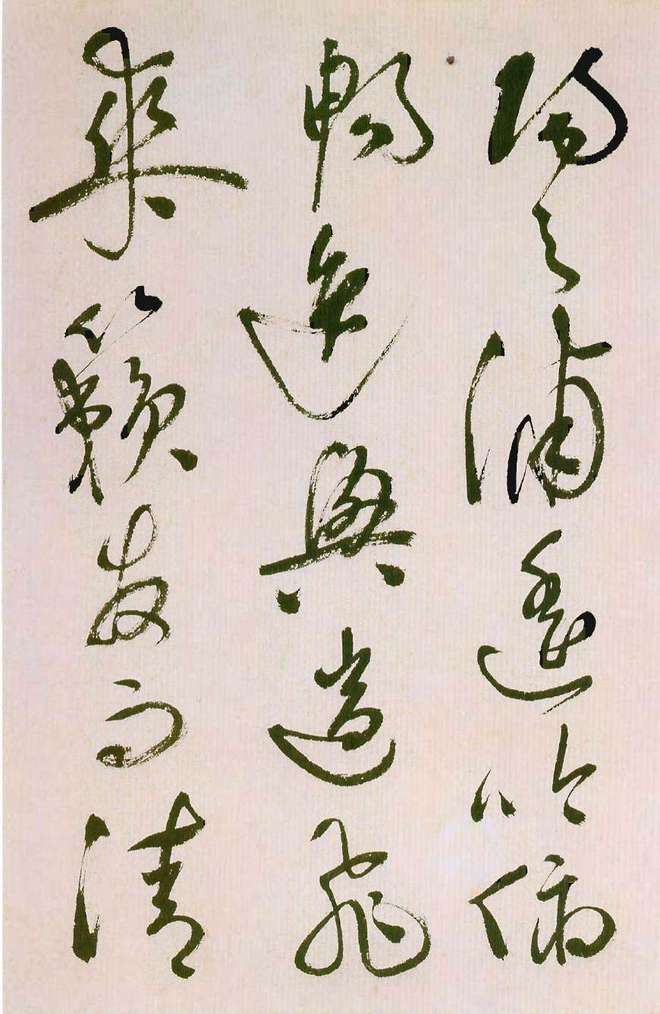 陽之浦遥吟俯
暢逸興遄飛
爽籟發而清